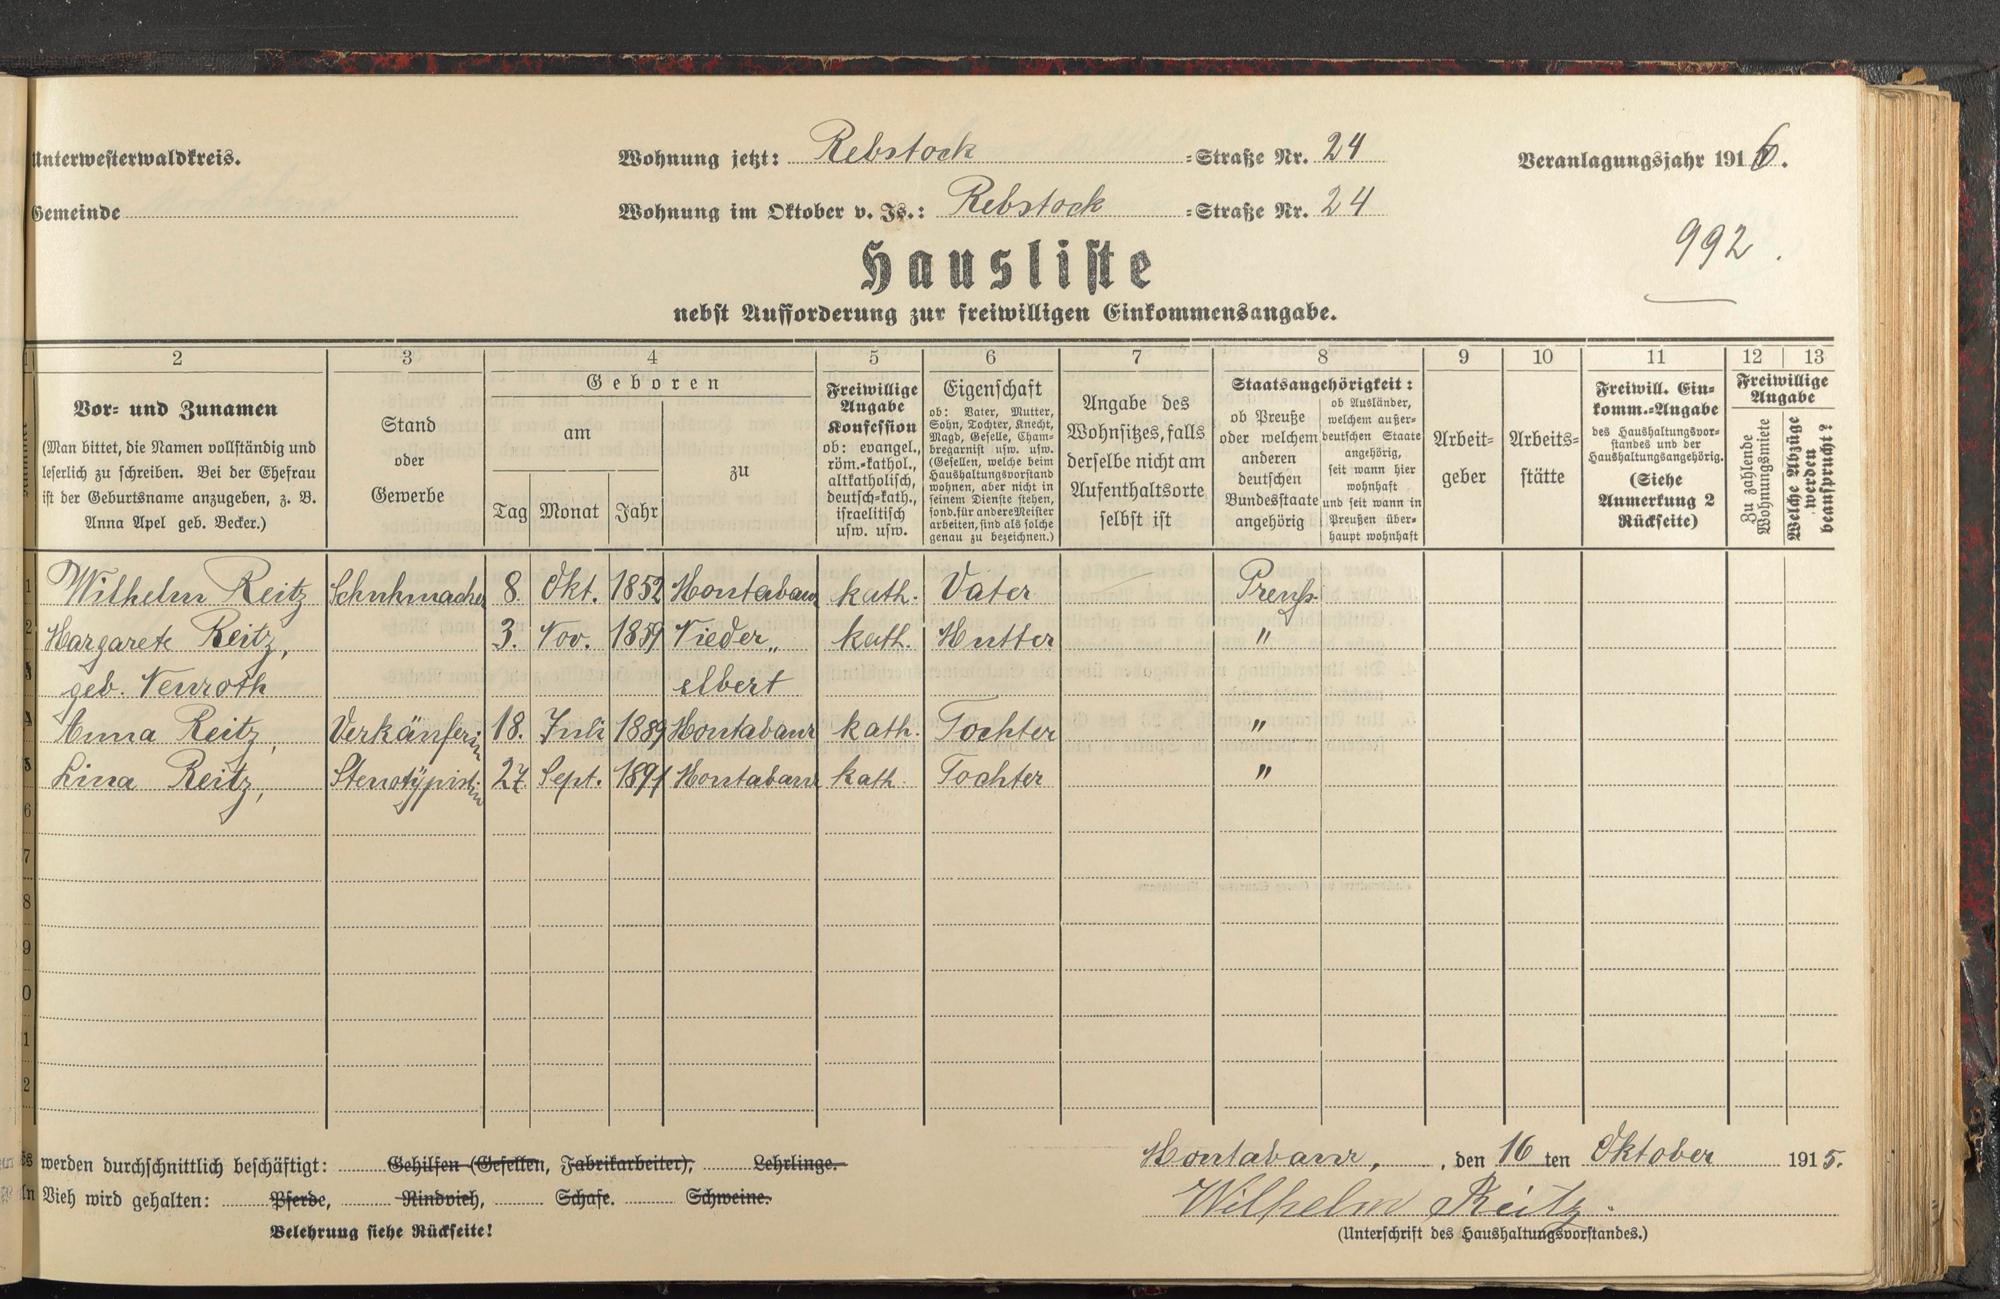 Unterwesterwaldkreis.
Wohnung jetzt: Rebstock =Straße Nr. 24
Veranlagungsjahr 1916.
Gemeinde
Wohnung im Oktober v. Js.: Rebstock =Straße Nr. 24
992.
Hausliste
nebst Aufforderung zur freiwilligen Einkommensangabe.
2 3 4 5 6 7 8 9 10 11 12 13
Vor= und Zunamen
(Man bittet, die Namen vollständig und
leserlich zu schreiben. Bei der Ehefrau
ist der Geburtsname anzugeben, z. B.
Anna Apel geb. Becker.)
Stand
oder
Gewerbe
Geboren
am
Tag Monat Jahr
zu
Freiwillige
Angabe
Konfession
ob: evangel.,
röm.=kathol.,
altkatholisch,
deutsch=kath.,
israelitisch
usw. usw.
Eigenschaft
ob: Vater, Mutter,
Sohn, Tochter, Knecht,
Magd, Geselle, Cham=
bregarnist usw. usw.
(Gesellen, welche beim
Haushaltungsvorstand
wohnen, aber nicht in
seinem Dienste stehen,
sond. für andere Meister
arbeiten, sind als solche
genau zu bezeichnen.)
Angabe des
Wohnsitzes, falls
derselbe nicht am
Aufenthaltsorte
selbst ist
Staatsangehörigkeit:
ob Preuße
oder welchem
anderen
deutschen
Bundesstaate
angehörig
ob Ausländer,
welchem außer=
deutschen Staate
angehörig,
seit wann hier
wohnhaft
und seit wann in
Preußen über=
haupt wohnhaft
Arbeit=
geber
Arbeits=
stätte
Freiwill. Ein=
komm.=Angabe
des Haushaltungsvor=
standes und der
Haushaltungsangehörig.
(Siehe
Anmerkung 2
Rückseite)
Freiwillige
Angabe
Zu zahlende
Wohnungsmiete
Welche Abzüge
werden
beansprucht?
1 Wilhelm Reitz Schuhmacher 8. Okt. 1852 Montabaur kath. Vater Preuß.
2 Margarete Reitz, 3. Nov. 1859 Nieder„ kath. Mutter "
3 geb. Neuroth elbert
4 Anna Reitz, Verkäuferin 18. Juli 1889 Montabaur kath. Tochter "
5 Lina Reitz, Stenotypistin 27. Sept. 1891 Montabaur kath. Tochter "
6
7
8
9
0
1
2
werden durchschnittlich beschäftigt: Gehilfen (Gesellen, Fabrikarbeiter), Lehrlinge.
Montabaur, , den 16 ten Oktober 1915.
Vieh wird gehalten: Pferde, Rindvieh, Schafe. Schweine.
Wilhelm Reitz.
Belehrung siehe Rückseite!
(Unterschrift des Haushaltungsvorstandes.)